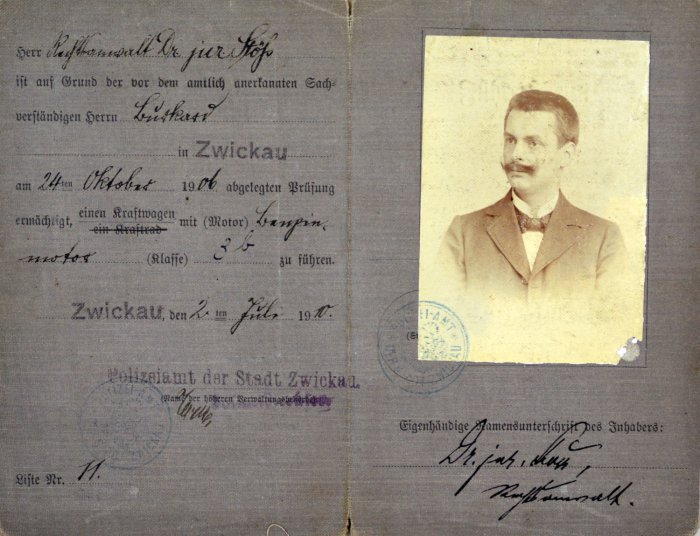 Herr Rechtsanwalt Dr. jur Stöß
ist auf Grund der vor dem amtlich anerkannten Sach-
verständigen Herrn Burkard
in Zwickau
am 24ten Oktober 1906 abgelegten Prüfung
ermächtigt, einen Kraftwagen mit (Motor) Benzin-
ein Kraftrad
motor (Klasse) 3b zu führen.
Zwickau, den 2ten Juli 1910.
Polizeiamt der Stadt Zwickau.
(Name der höheren Verwaltungsbehörde)
Liste Nr. 11.
Eigenhändige Namensunterschrift des Inhabers:
Dr. jur.
Rechtsanwalt.